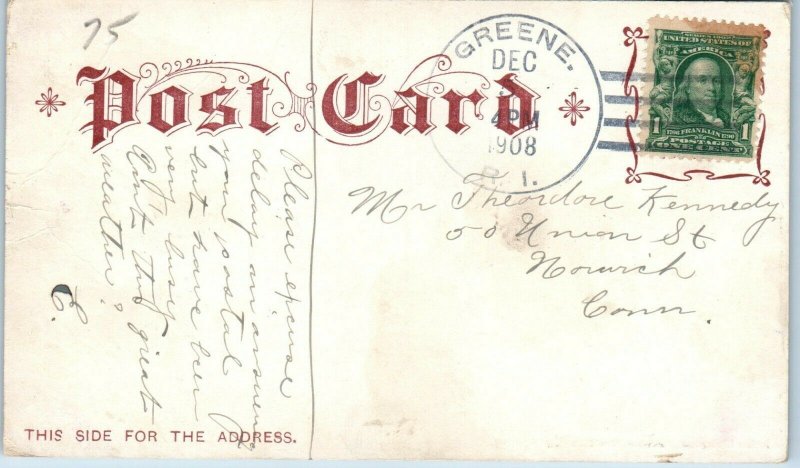 75
Post Card
GREENE.
DEC
4 PM
1908
R. I.
SERIES 1902
UNITED STATES OF
AMERICA
1706 FRANKLIN 1790
1 1
POSTAGE
ONE CENT
Mr Theodore Kennedy
50 Union St
Norwich
Conn.
Please excuse
delay in answering
your postal
but have been
very busy
Aint this great
weather?
C.
THIS SIDE FOR THE ADDRESS.